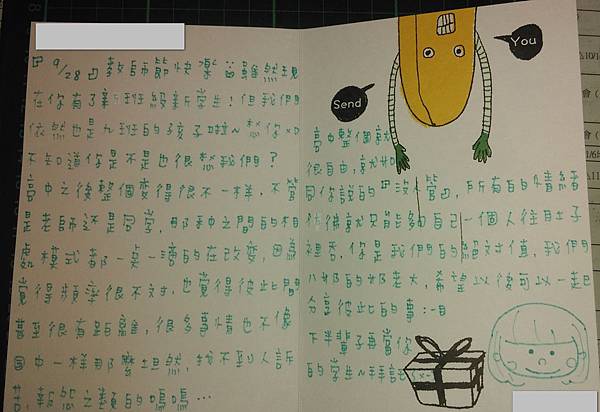 「9/28」教師節快樂 雖然現
在你有了新班級新學生!但我們
依然也是九班的孩子啦~ 想你
不知道你是不是也很想我們?
高中之後整個變得很不一樣,不管
是老師還是同學,那種之間的相
處模式都一點一滴的在改變,因為
覺得頻率很不對,也覺得彼此間
甚至很有距離,很多事情也不像
國中一樣那麼坦然,找不到人訴
苦、抱怨之類的嗚嗚…
You
Send
高中整個就
很自由,就如
同你說的「沒人管」,所有的情緒
彷彿就只能夠自己一個人往肚子
裡吞,你是我們的絕對值,我們
的 老大,希望以後可以一起
分享彼此的事:-)
下半輩子再當你
的學生~拜託